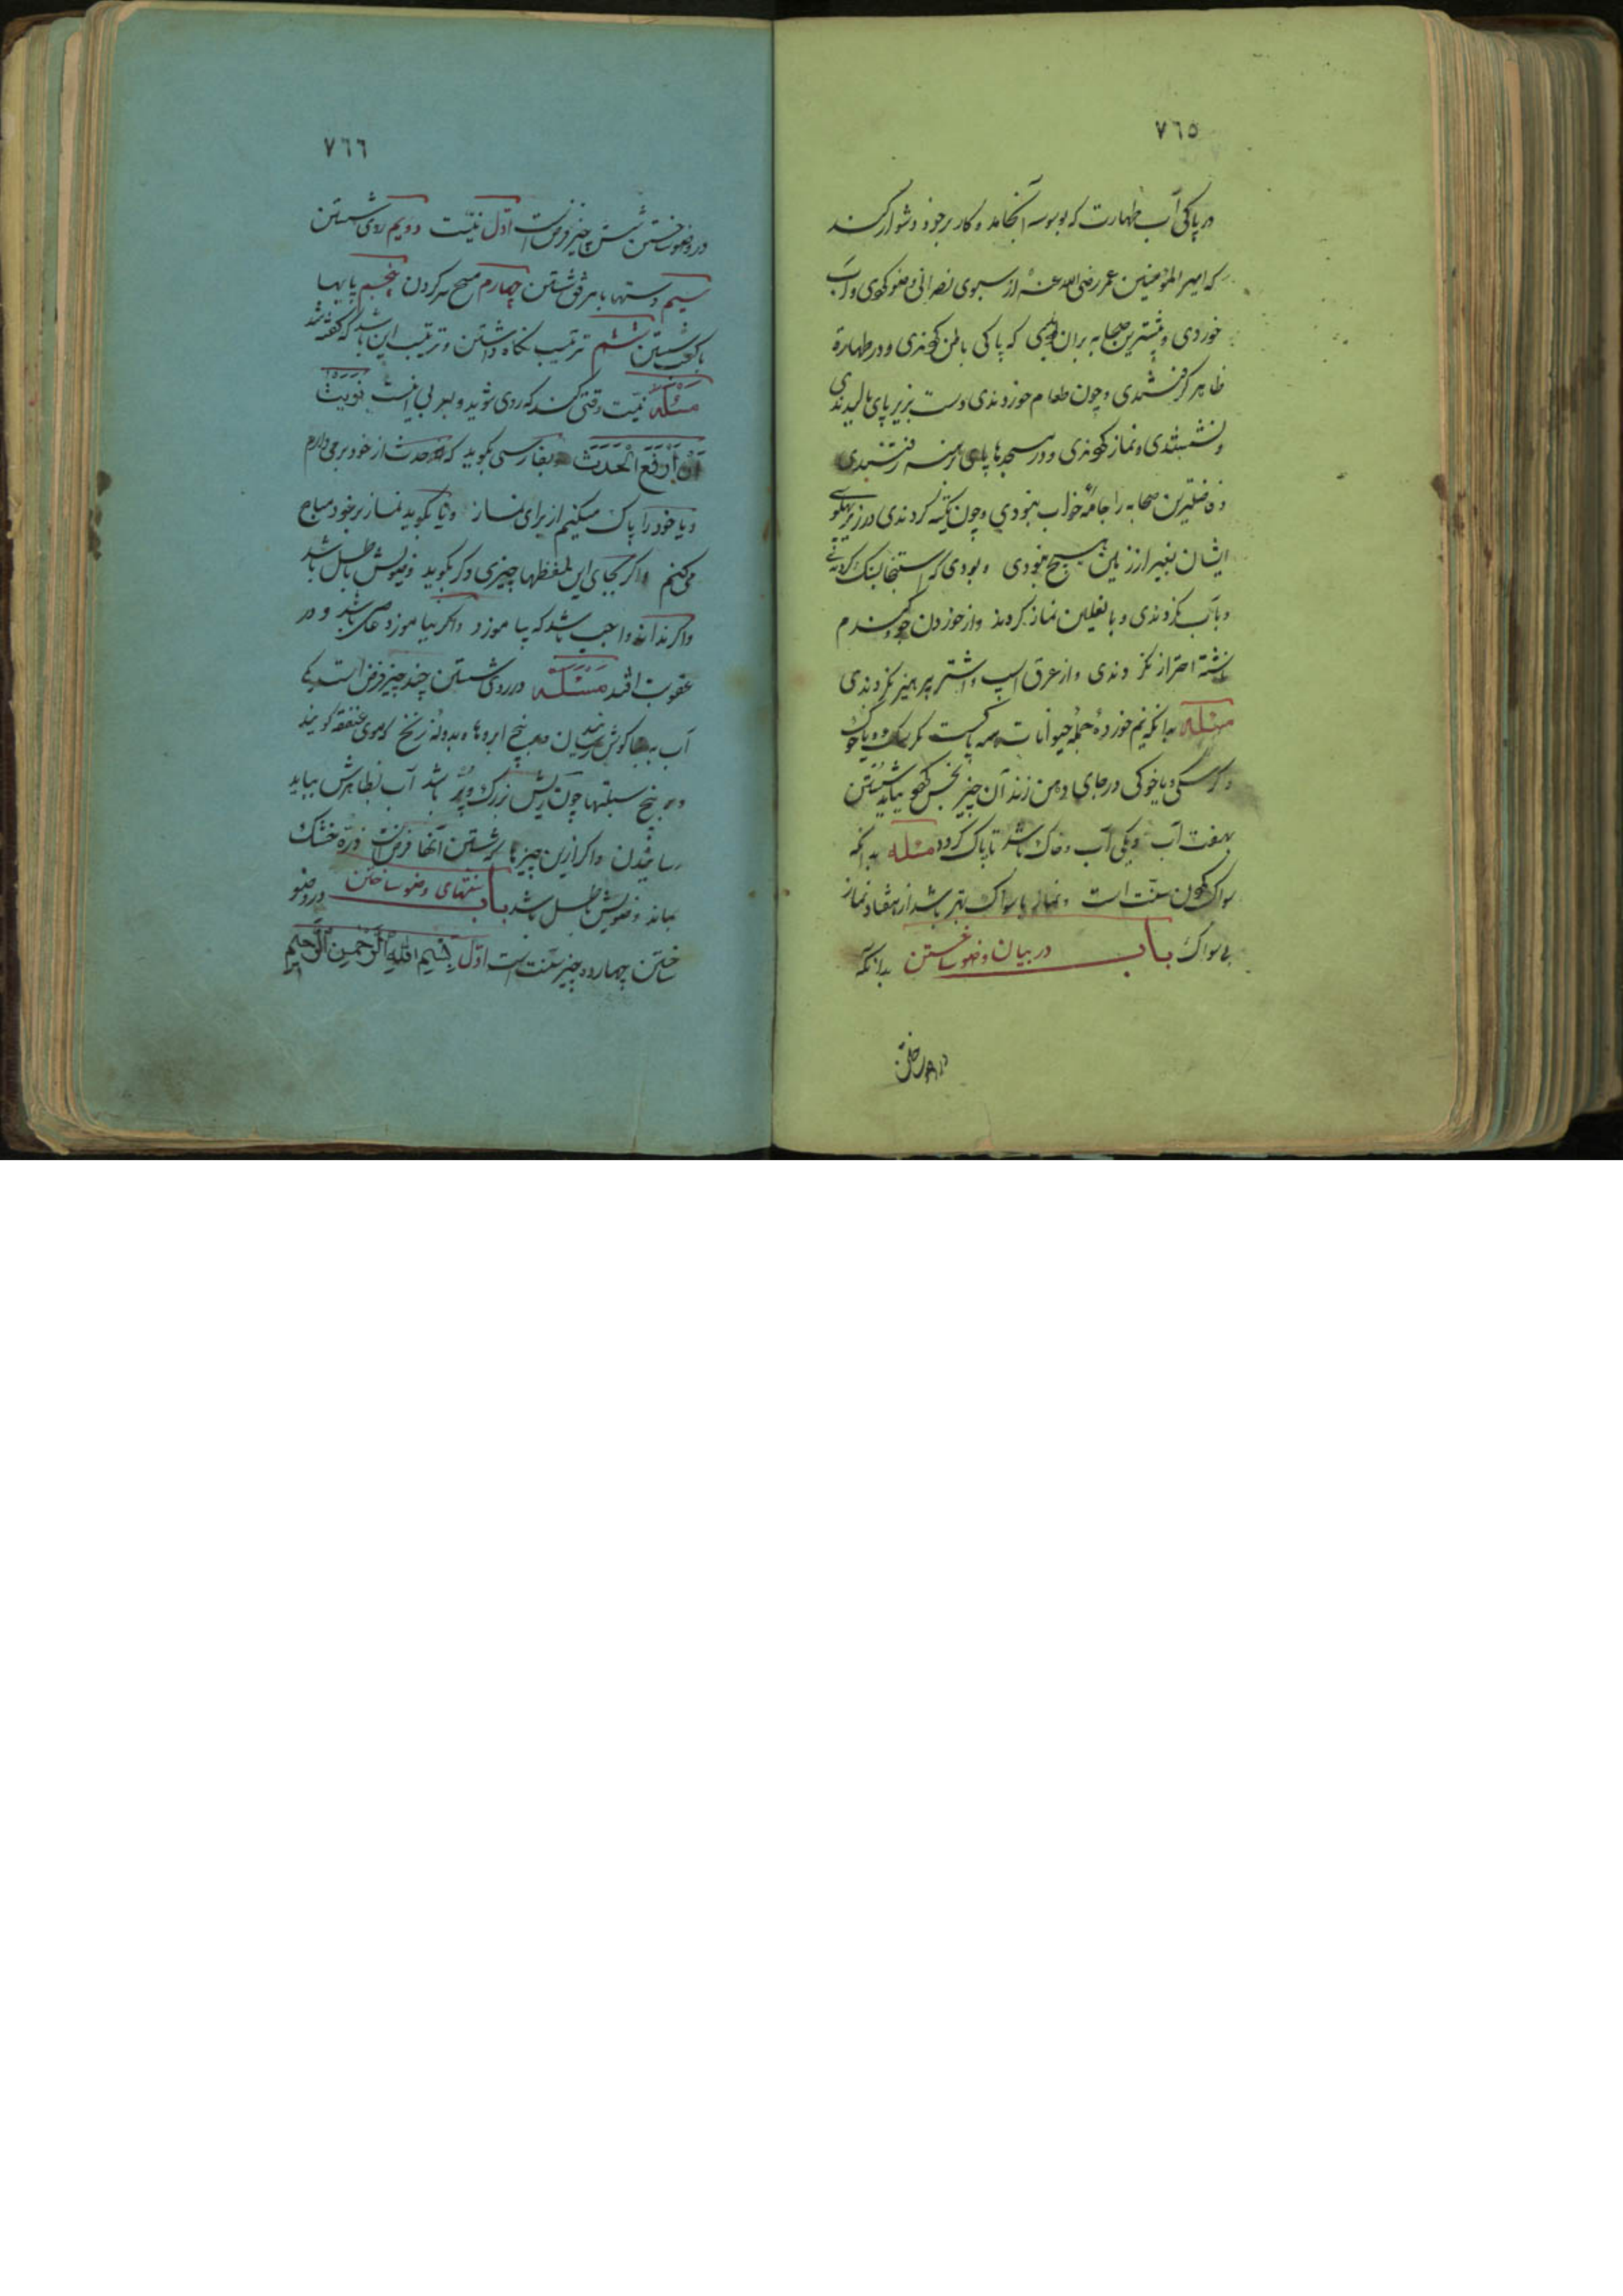 ٧٦٥
در پاکی آب طهارت که بوسوسه انجامد و کار برخود دشوار کند
که امیر المؤمنین عمر رضی الله عنه از سبوی نصرانی وضو کردی و آب
خوردی و بیشترین صحابه بران که پاکی باطن کردندی و در طهارة
ظاهر گرفتندی و چون طعام خوردندی دست بزیر پای مالیدندی
و نشستندی و نماز کردندی و در مسجدها پای برهنه رفتندی
و فاضلترین صحابه را جامهٔ خواب نبودی و چون تکیه کردندی در زیر پهلوی
ایشان بغیر از زمین هیچ نبودی و بودی که استنجا بسنگ کردندی
و بآب نکردندی و با نعلین نماز کردند و از خوردن جو و گندم
نشسته احتراز نکردندی و از عرق اسپ و اشتر پرهیز نکردندی
مسئله بدانکه نیم خوردهٔ جمله حیوانات همه پاکست مگر سک و خوک
و اگر سکی یا خوکی در جای دهن زند آن چیز نجس بباید شستن
بهفت آب و یکی آب و خاک باشد تا پاک کردد مسئله بدانکه
سواک کردن سنّت است و نماز با سواک بهتر باشد از هفتاد نماز
بی سواک باب در بیان وضو ساختن بدانکه
٧٦٦
در وضو ساختن شش چیز فرض است اوّل نیّت دویم روی شستن
سیم دستها با مرفق شستن چهارم مسح سر کردن پنجم پایها
با کعب شستن ششم ترتیب نکاه داشتن و ترتیب این باشد که کفته شد
مسئله نیّت وقتی کند که روی شوید و بعربی اینست نَوَیْتُ
اَنْ اَرْفَعَ الْحَدَثَ و بفارسی بکوید که حدث از خود برمی دارم
و یا خود را پاک میکنم از برای نماز و یا بکوید نماز برخود مباح
می کنم و اکر بجای این لفظها چیزی دکر بکوید وضویش باطل باشد
و اکر نداند واجب باشد که بیاموزد و اکر نیاموزد عاصی باشد و در
عقوبت افتد مسئله در روی شستن چند چیز فرض است یکی
آب به بناکوش رسانیدن و بیخ ابروها و بدونه زنخ که موی عنفقه کویند
و بیخ سبلتها چون ریش بزرک و پر باشد آب بظاهرش بباید
رسانیدن و اکر ازین چیزها که شستن آنها فرض است ذرّه خشک
بماند وضویش باطل باشد باب سنتهای وضو ساختن در وضو
ساختن چهارده چیز سنّت است اوّل بِسْمِ اللهِ الرَّحْمنِ الرَّحِیمِ